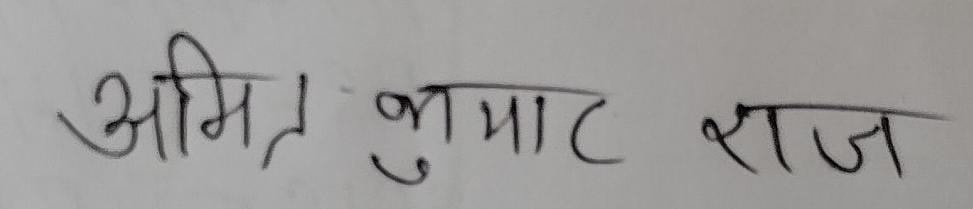 अमित कुमार राज